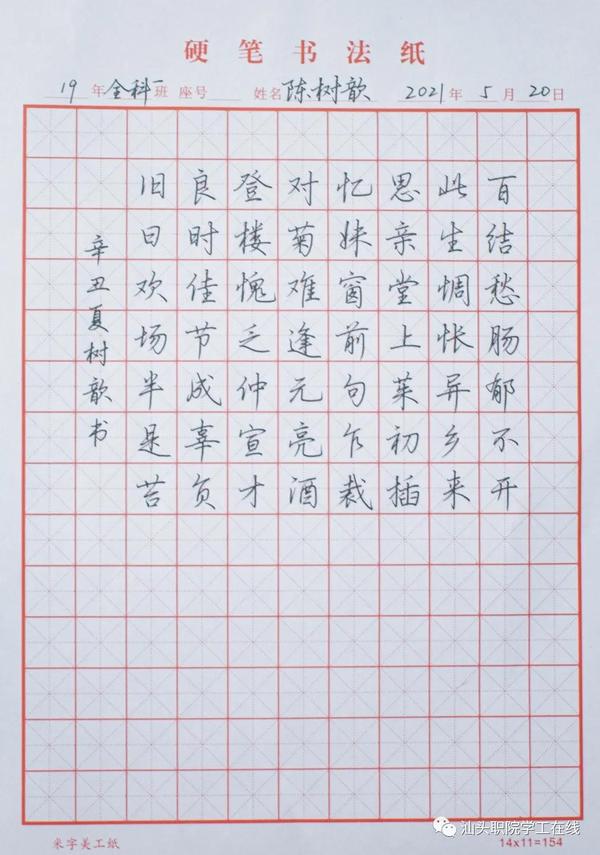 硬笔书法纸
19年全科一班 座号 姓名陈树歆 2021年5月20日
百结愁肠郁不开
此生惆怅异乡来
思亲堂上茱初插
忆妹窗前句乍裁
对菊难逢元亮酒
登楼愧乏仲宣才
良时佳节成辜负
旧日欢场半是苔
辛丑夏树歆书
米字美工纸
14x11=154
汕头职院学工在线